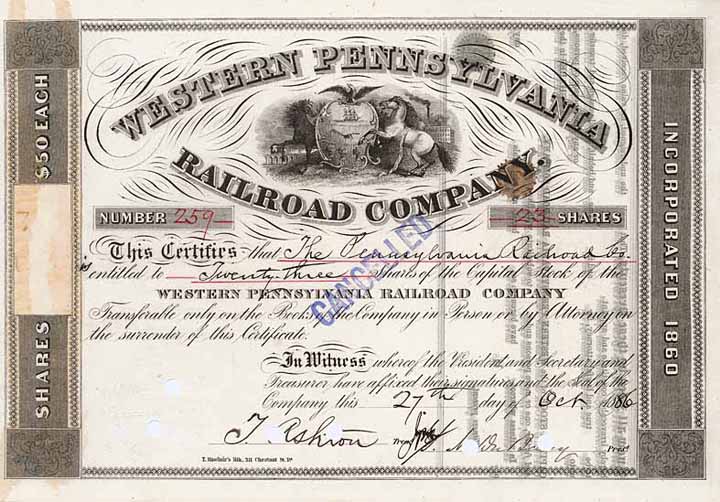 WESTERN PENNSYLVANIA
RAILROAD COMPANY.
$50 EACH
SHARES
INCORPORATED 1860
NUMBER 259
23 SHARES
This Certifies that The Pennsylvania Railroad Co.
is entitled to Twenty three Shares of the Capital Stock of the
WESTERN PENNSYLVANIA RAILROAD COMPANY
Transferable only on the Books of the Company in Person or by Attorney on
the surrender of this Certificate.
CANCELLED
In Witness whereof the President and Secretary and
Treasurer have affixed their signatures and the Seal of the
Company this 27th day of Oct. 1886
Treas
Prest
T. Sinclair's lith, 311 Chestnut St. Pa